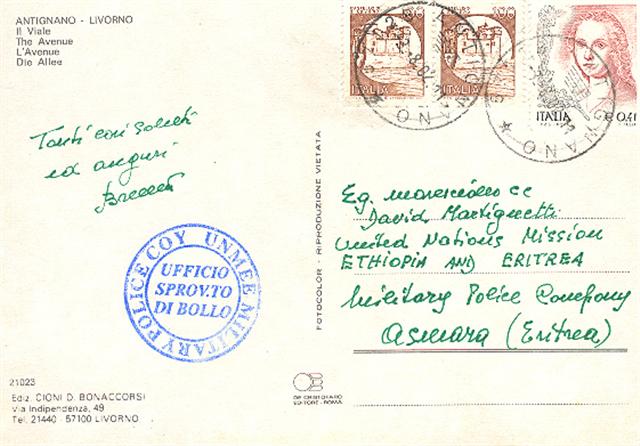 ANTIGNANO - LIVORNO
Il Viale
The Avenue
L'Avenue
Die Allee
Tanti cari saluti
ed auguri
UNMEE MILITARY POLICE COY
UFFICIO
SPROV.TO
DI BOLLO
21023
Ediz. CIONI D. BONACCORSI
Via Indipendenza, 49
Tel. 21440 - 57100 LIVORNO
FOTOCOLOR - RIPRODUZIONE VIETATA
DE CRISTOFARO
EDITORE - ROMA
ITALIA
ITALIA
ITALIA
€ 0,41
Eg. maresciallo cc
David Martignetti
United Nations Mission
ETHIOPIA AND ERITREA
Military Police Company
Asmara (Eritrea)